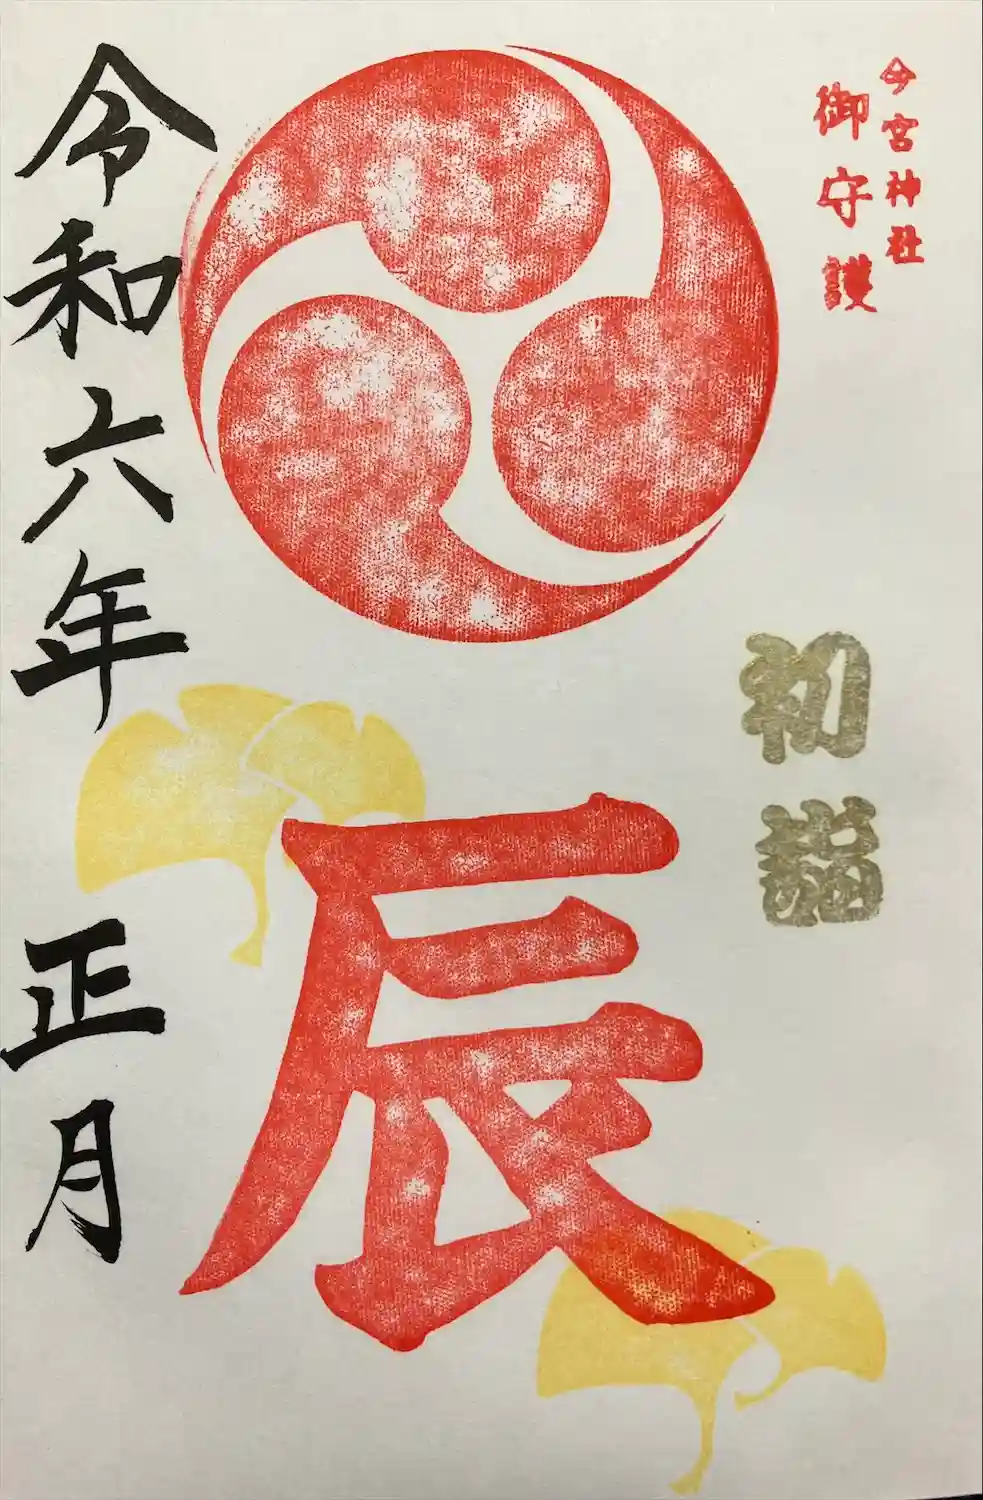 今宮神社
御守護
初詣
辰
令和六年 正月